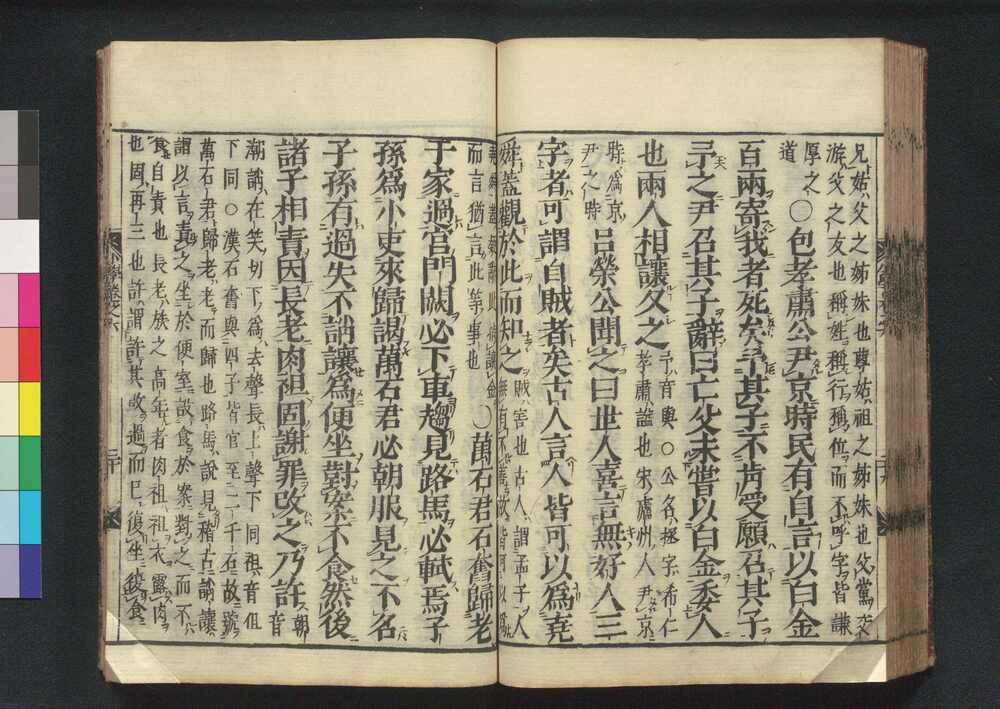 兄姑父之姊妹也尊姑祖之姊妹也父黨父
游父之友也稱姓稱行稱位而不呼字皆謙
厚之
道
○包孝肅公尹京時民有自言以白金
百兩寄我者死矣予其子不肯受願召其子
予之尹召其子辭曰亡父未嘗以白金委人
也兩人相讓久之
予音與○公名拯字希仁
孝肅謚也宋廬州人尹京
時爲京
尹之時
呂榮公聞之曰世人喜言無好人三
字者可謂自賊者矣古人言人皆可以爲堯
舜蓋觀於此而知之
賊害也古人謂孟子人
而言猶言此等事也
○萬石君石奮歸老
于家過宮門闕必下車趨見路馬必軾焉子
孫爲小吏來歸謁萬石君必朝服見之不名
子孫有過失不誚讓爲便坐對案不食然後
諸子相責因長老肉袒固謝罪改之乃許
朝音
潮誚在笑切下爲去聲長上聲下同袒音但
下同○漢石奮與四子皆官至二千石故號
萬石君歸老老而歸也路馬說見稽古誚讓
謂以言責之坐於便室設食於案對之而不
食自責也長老族之高年者肉袒袒衣露肉
也固再三也許謂許其改過而已復坐復食